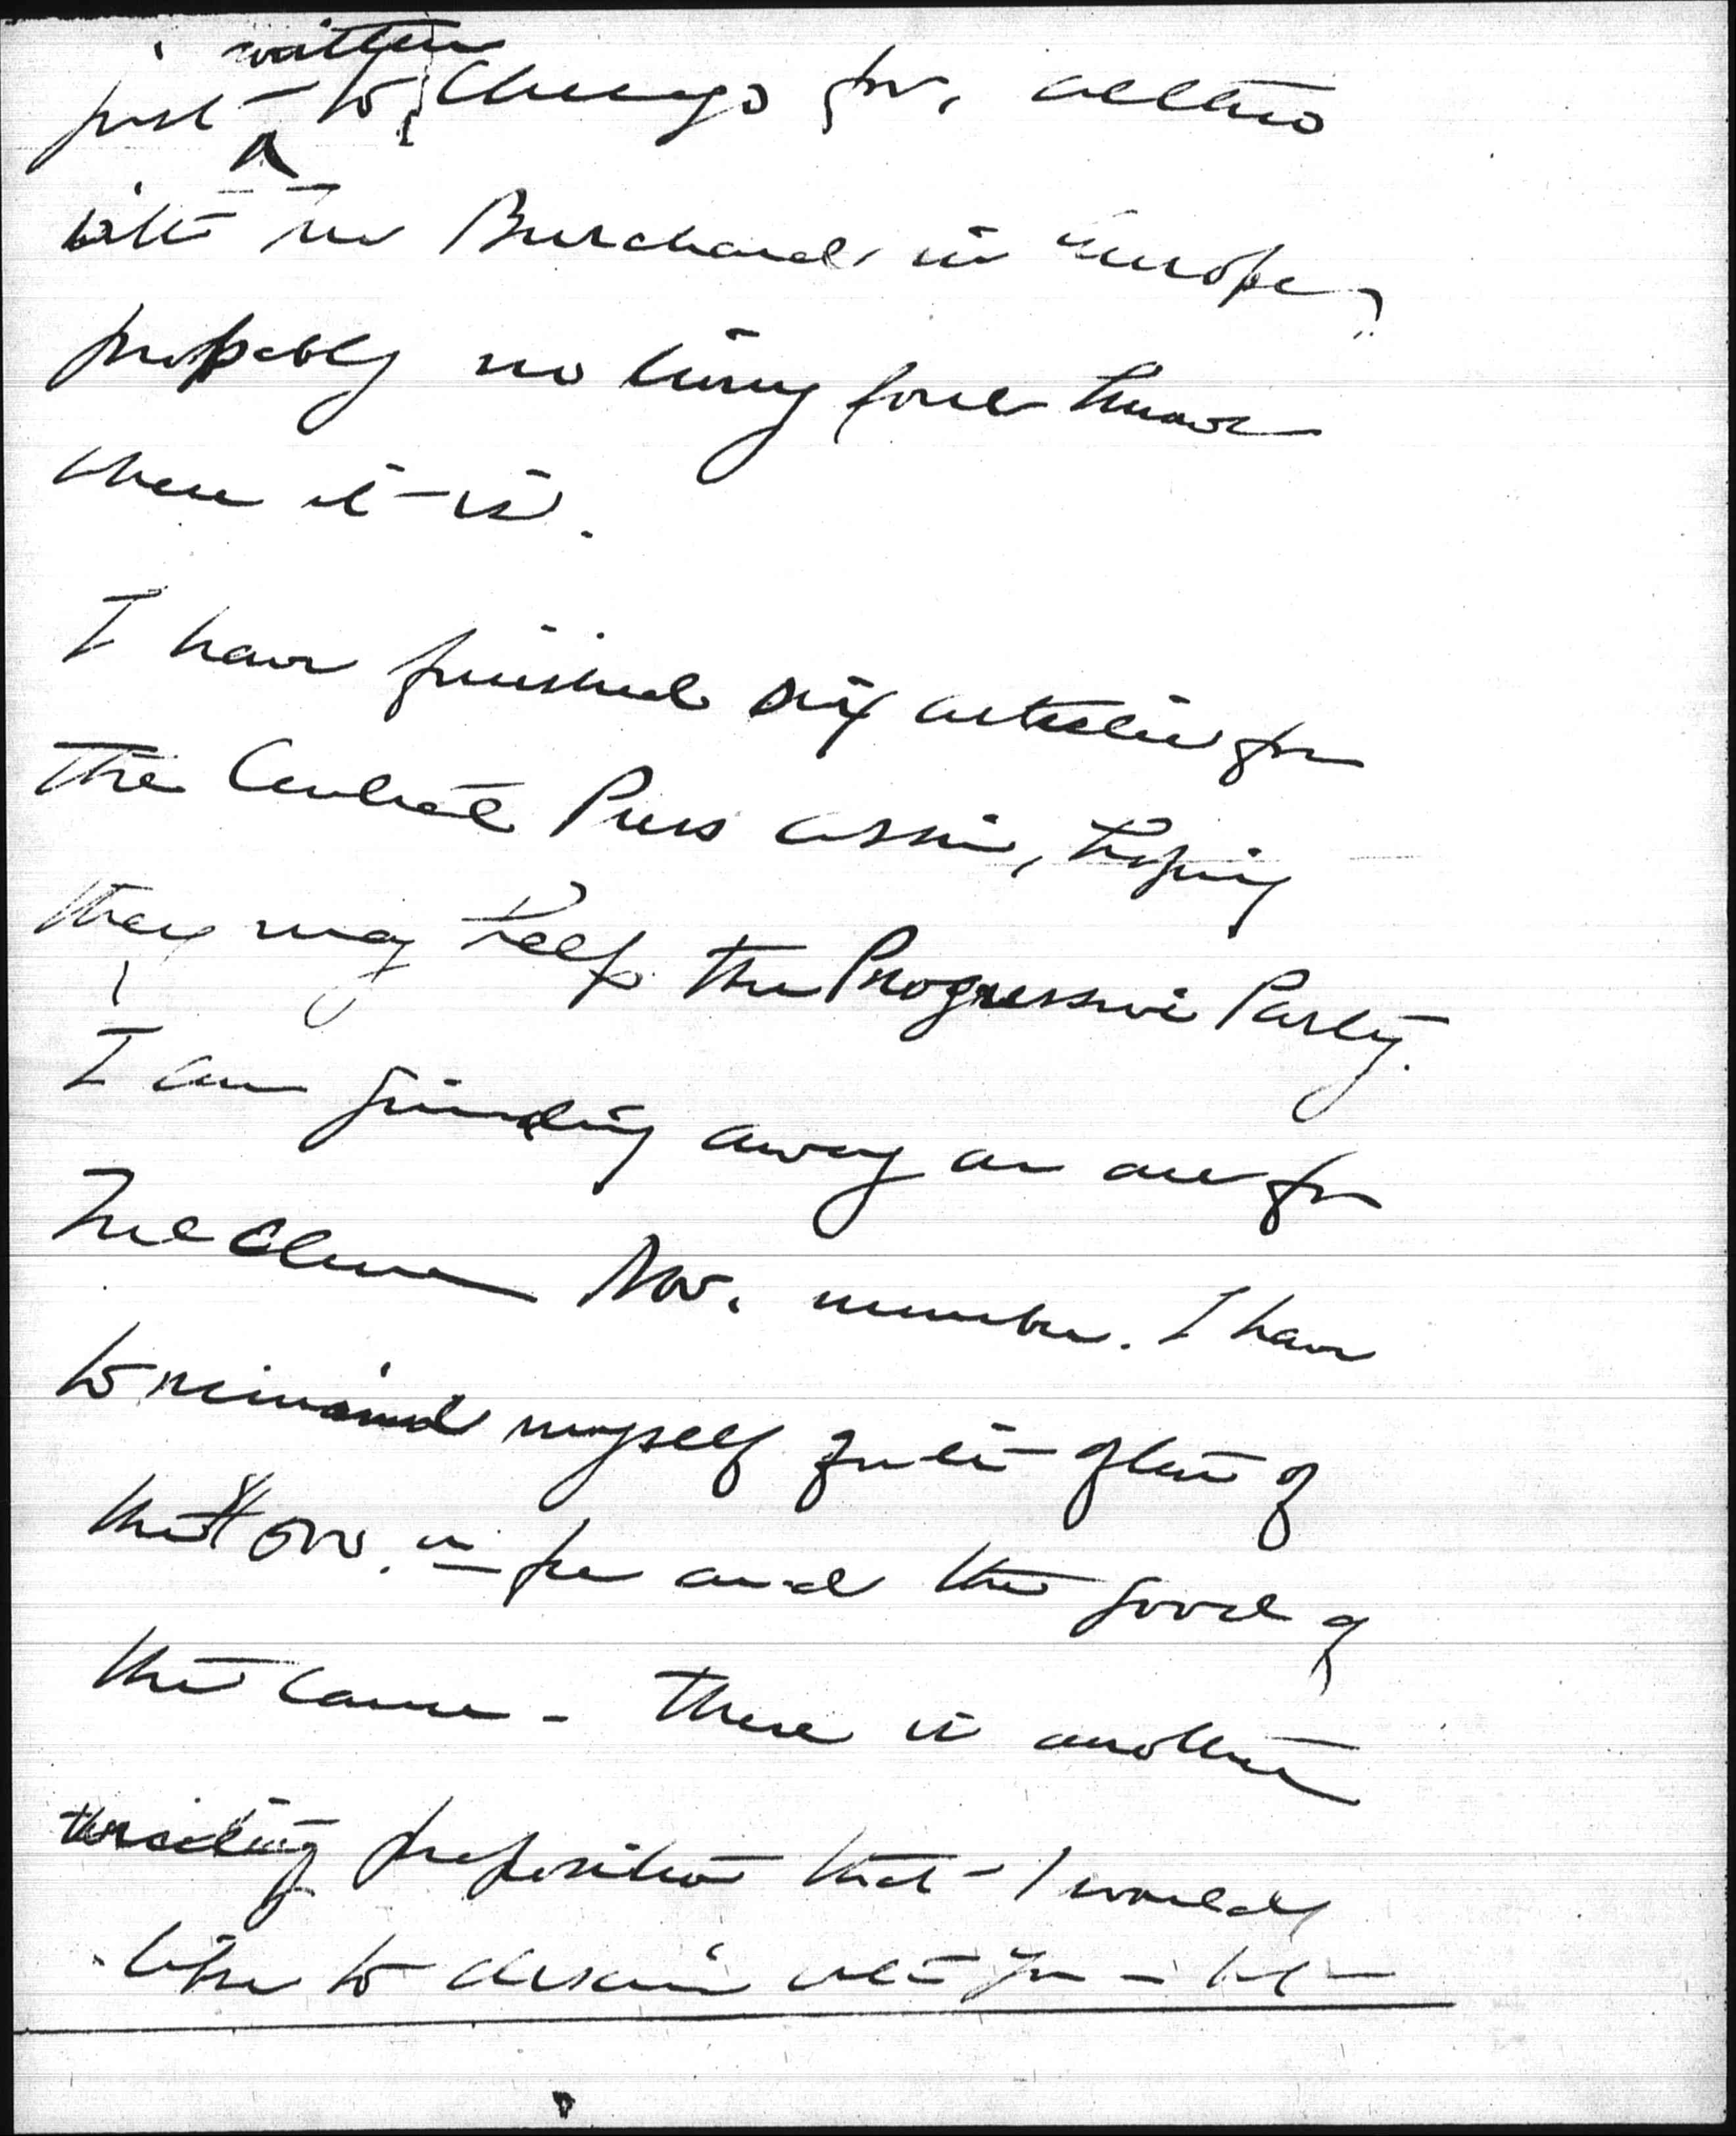 written
just to Chicago for, altho
with Mr Burchard in Europe,
probably no living soul knows
where it is.
I have finished six articles for
the Central Press assn, hoping
they may help the Progressive Party.
I am grinding away on one for
McClure Nov. number. I have
to remind myself quite often of
the and the good of
the cause - There is another
proposition that I would
like to discuss with you - but